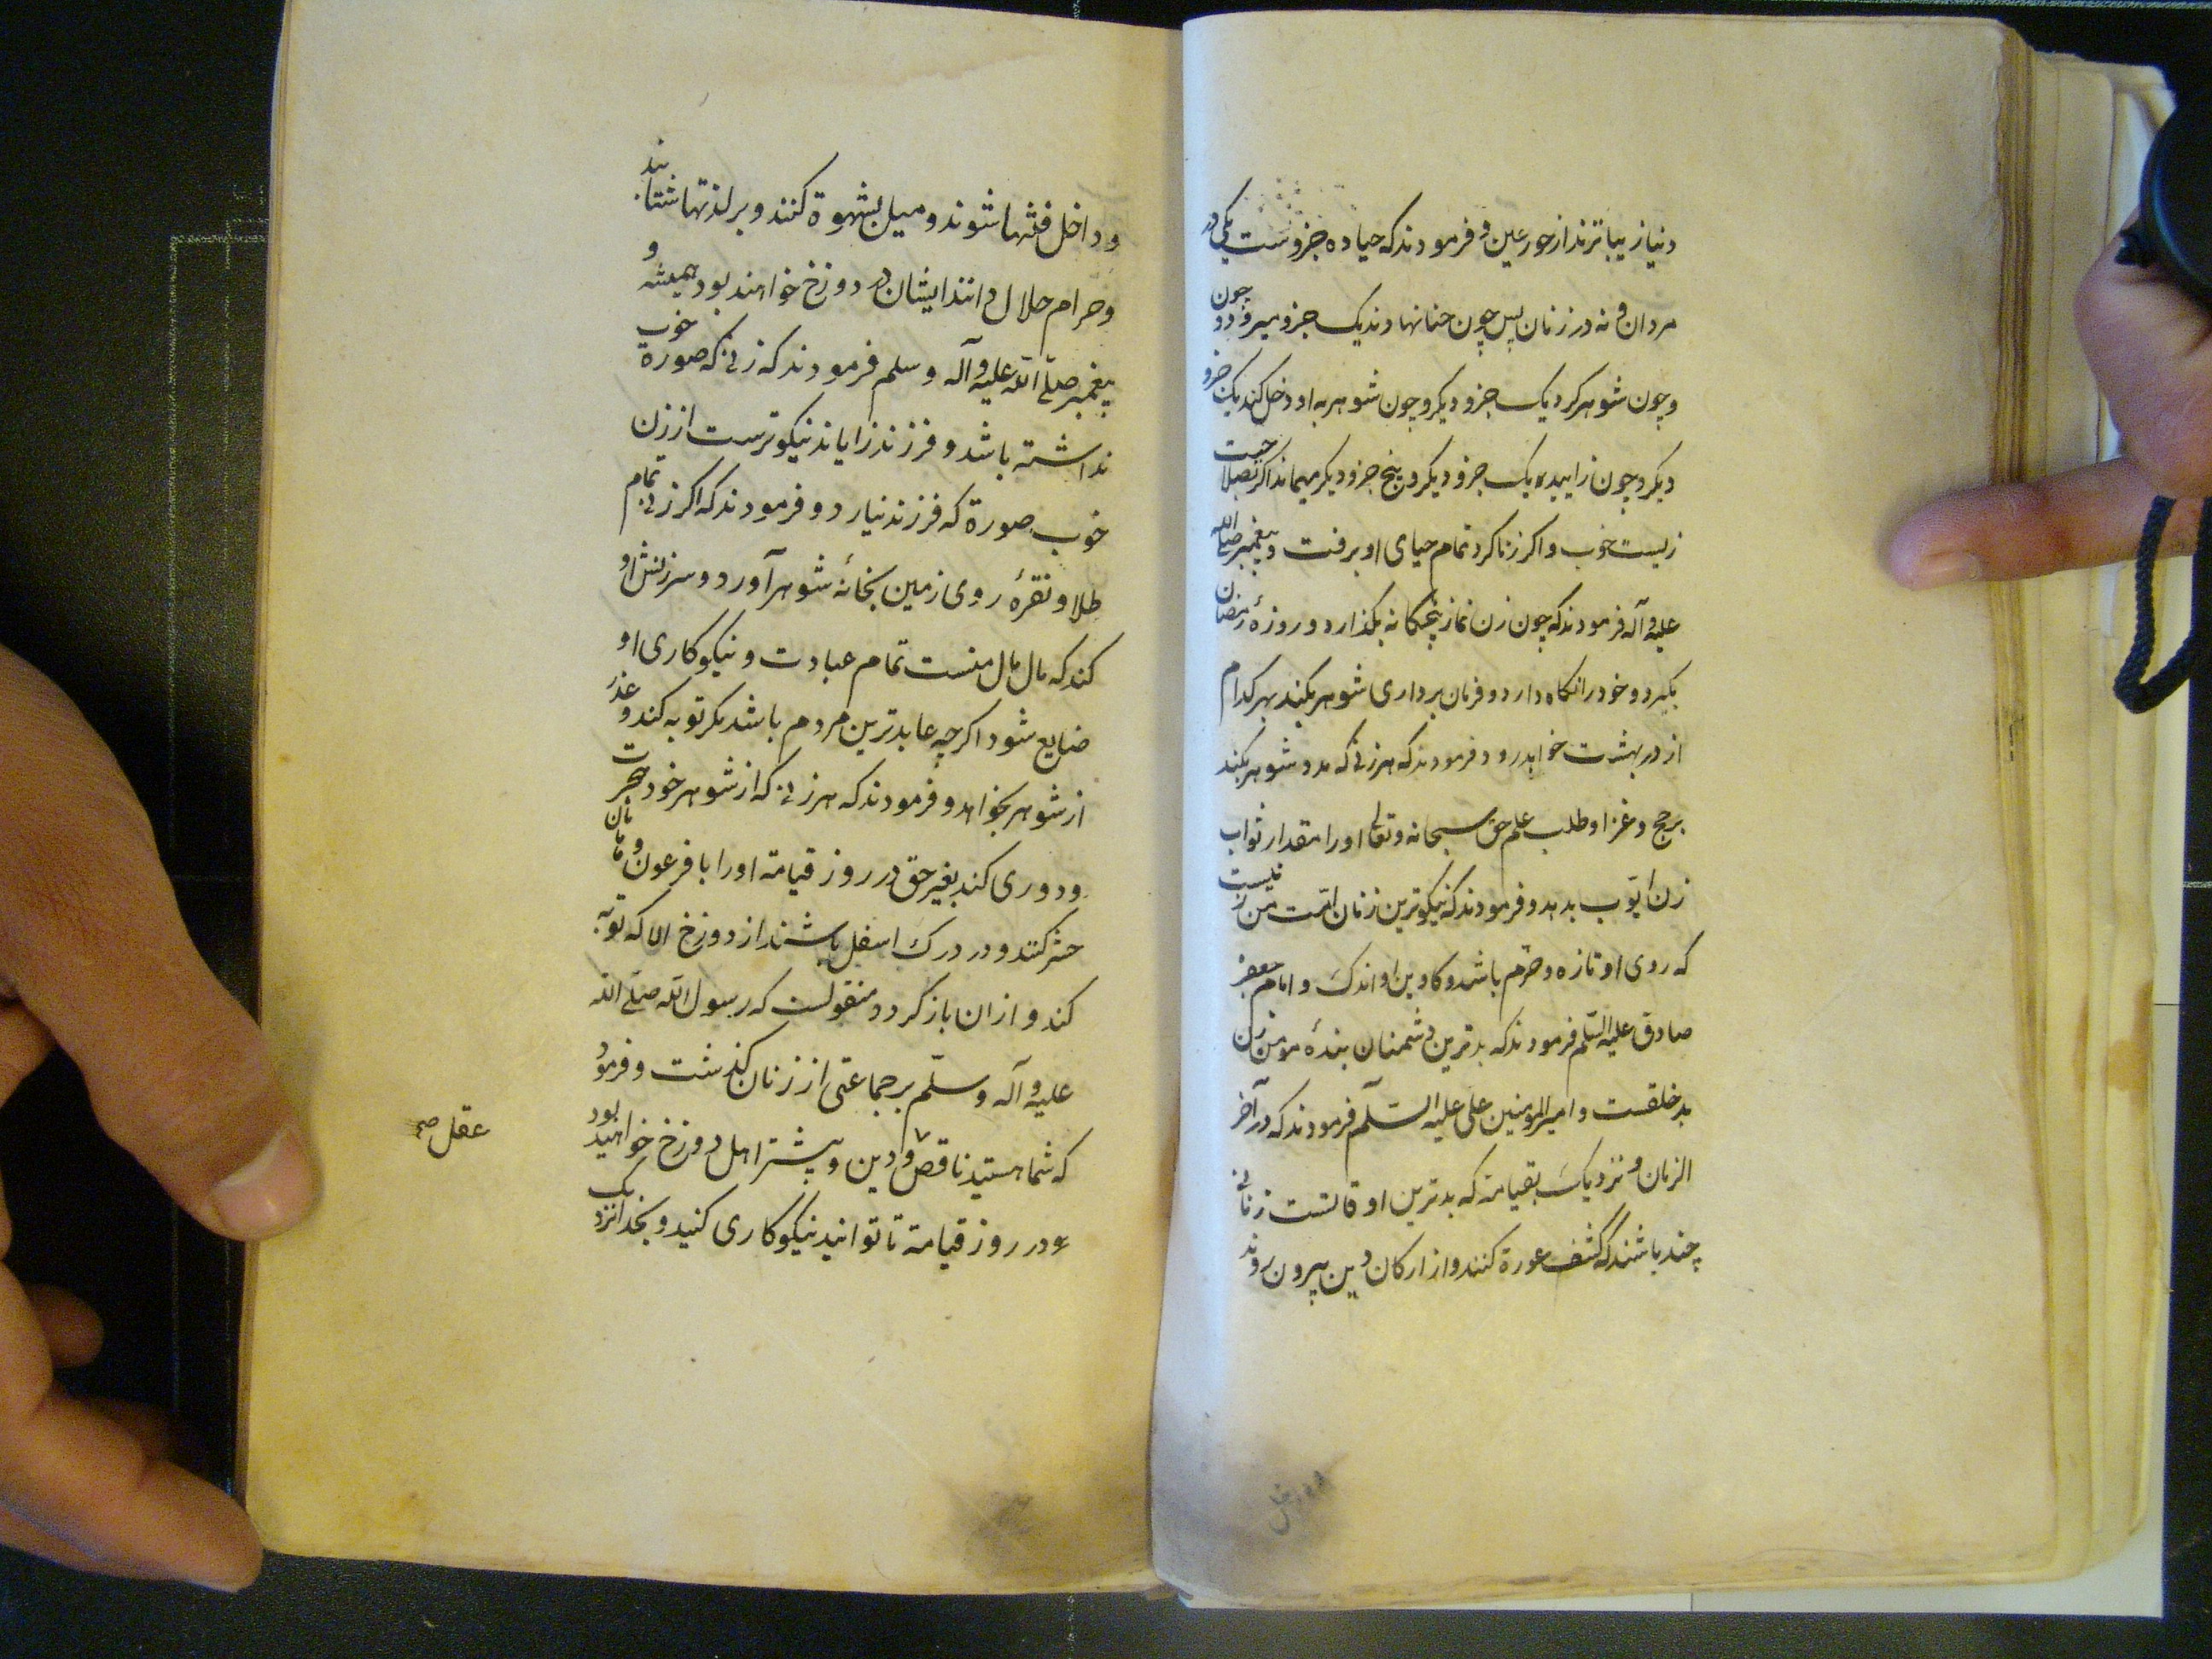 دنیا زیباترند از حور عین و فرمودند که حیا ده جزوست یکی در
مردان و نه در زنان پس چون ختنانهادند یک جزو میرود و چون
و چون شوهر کرد یک جزو دیگر و چون شوهر به او دخل کند یک جزو
دیگر و چون زایید یک جزو دیگر و پنج جزو دیگر میماند اگر بصلاحیت
زیست خوب و اگر زنا کرد تمام حیای او برفت و پیغمبر صلی الله
علیه و آله فرمودند که چون زن نماز پنجگانه بگذارد و روزهٔ رمضان
بگیرد و خود را نگاه دارد و فرمان برداری شوهر بکند بهر کدام
از در بهشت خواهد رود و فرمودند که هر زنی که مدد شوهر بکند
بر حج و غزا و طلب علم حق سبحانه و تعالی او را مقدار ثواب
زن ایّوب بدهد و فرمودند که نیکوترین زنان امّت من زنیست
که روی او تازه و خرّم باشد و کاوین او اندک و امام جعفر
صادق علیه السّلم فرمودند که بدترین دشمنان بندهٔ مومن زن
بدخلقست و امیر المومنین علی علیه السّلم فرمودند که در آخر
الزمان و نزدیک بقیامة که بدترین اوقاتست زنانی
چند باشند که کشف عورة کنند و از ارکان دین بیرون روند
و داخل فتنها شوند و میل بشهوة کنند و بر لذتها شتابند
و حرام حلال دانند ایشان در دوزخ خواهند بود همیشه و
پیغمبر صلّی الله علیه و آله و سلم فرمودند که زنی که صورة خوب
نداشته باشد و فرزند زایاند نیکوترست از زن
خوب صورة که فرزند نیارد و فرمودند که اگر زنی تمام
طلا و نقرهٔ روی زمین بخانهٔ شوهر آورد و سرزنش او
کند که مال مال منست تمام عبادت و نیکوکاری او
ضایع شود اگر چه عابدترین مردم باشد مگر توبه کند و عذر
از شوهر بخواهد و فرمودند که هر زنی که از شوهر خود هجرت
و دوری کند بغیر حق در روز قیامة او را با فرعون و هامان
حشر کنند و در درک اسفل باشند از دوزخ الا که توبه
کند و از ان باز گردد و منقولست که رسول الله صلّی الله
علیه و آله و سلّم بر جماعتی از زنان گذشت و فرمود
که شما هستید ناقص و دین و بیشتر اهل دوزخ خواهید بود
عقل صح
در روز قیامة تا توانید نیکوکاری کنید و بخدا نزدیک